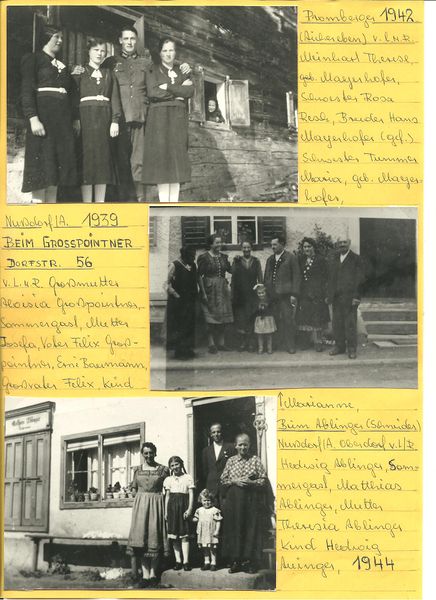 Promberger 1942
(Aichereben) v.l.n.R.
Meinhart Therese,
geb. Mayerhofer,
Schwester Rosa
Resle, Bruder Hans
Mayerhofer (gef.)
Schwester Tummer
Maria, geb. Mayer-
hofer,
Nußdorf/A. 1939
BEIM GROSSPOINTNER
DORFSTR. 56
v.l.n.R. Großmutter
Aloisia Großpointner,
Sommergast, Mutter
Josefa, Vater Felix Groß-
pointner, Erni Baumann,
Großvater Felix, Kind
Marianne,
Beim Ablinger (Schmieder)
Nußdorf/A. Oberdorf v.l.R.
Hedwig Ablinger, Som-
mergast, Matthias
Ablinger, Mutter
Theresia Ablinger
Kind Hedwig
Auinger, 1944